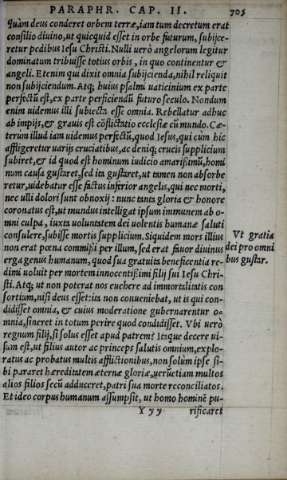 PARAPHR. CAP. II. 705
quàm deus conderet orbem terræ, iam tum decretum erat
consilio diuino, ut quicquid esset in orbe futurum, subijce-
retur pedibus Iesu Christi. Nulli uerò angelorum legitur
dominatum tribuisse totius orbis, in quo continentur &
angeli. Etenim qui dixit omnia subijcienda, nihil reliquit
non subijciendum. Atq; huius psalmi uaticinium ex parte
perfectũ est, ex parte perficiendũ futuro seculo. Nondum
enim uidemus illi subiecta esse omnia. Rebellatur adhuc
ab impijs, & grauis est cõflictatio ecclesiæ cũ mundo. Cæ-
terùm illud iam uidemus perfectũ, quod Iesus, qui cùm hic
affligeretur uarijs cruciatibus, ac deniq; crucis supplicium
subiret, & id quod est hominum iudicio amarißimũ, homi
num causa gustaret, sed ita gustaret, ut tamen non absorbe
retur, uidebatur esse factus inferior angelis, qui nec morti,
nec ulli dolori sunt obnoxij: nunc tanta gloria & honore
coronatus est, ut mundus intelligat ipsum immunem ab o-
mni culpa, iuxta uoluntatem dei uolentis humanæ saluti
consulere, subisse mortis supplicium. Siquidem mors illius
non erat pœna commißi per illum, sed erat fauor diuinus
erga genus humanum, quod sua gratuita beneficentia re-
dimi uoluit per mortem innocentißimi filij sui Iesu Chri-
sti. Atq; ut non poterat nos euehere ad immortalitatis con
sortium, nisi deus esset: ita non conueniebat, ut is qui con-
didisset omnia, & cuius moderatione gubernarentur o-
mnia, sineret in totum perire quod condidisset. Vbi uerò
regnum filij, si solus esset apud patrem? Itaque decere ui-
sum est, ut filius autor ac princeps salutis omnium, explo-
ratus ac probatus multis afflictionibus, non solùm ipse si-
bi pararet hæreditatem æternæ gloriæ, uerũetiam multos
alios filios secũ adduceret, patri sua morte reconciliatos.
Et ideo corpus humanum assumpsit, ut homo hominẽ pu-
Vt gratia
dei pro omni
bus gustar.
Y y y rificaret